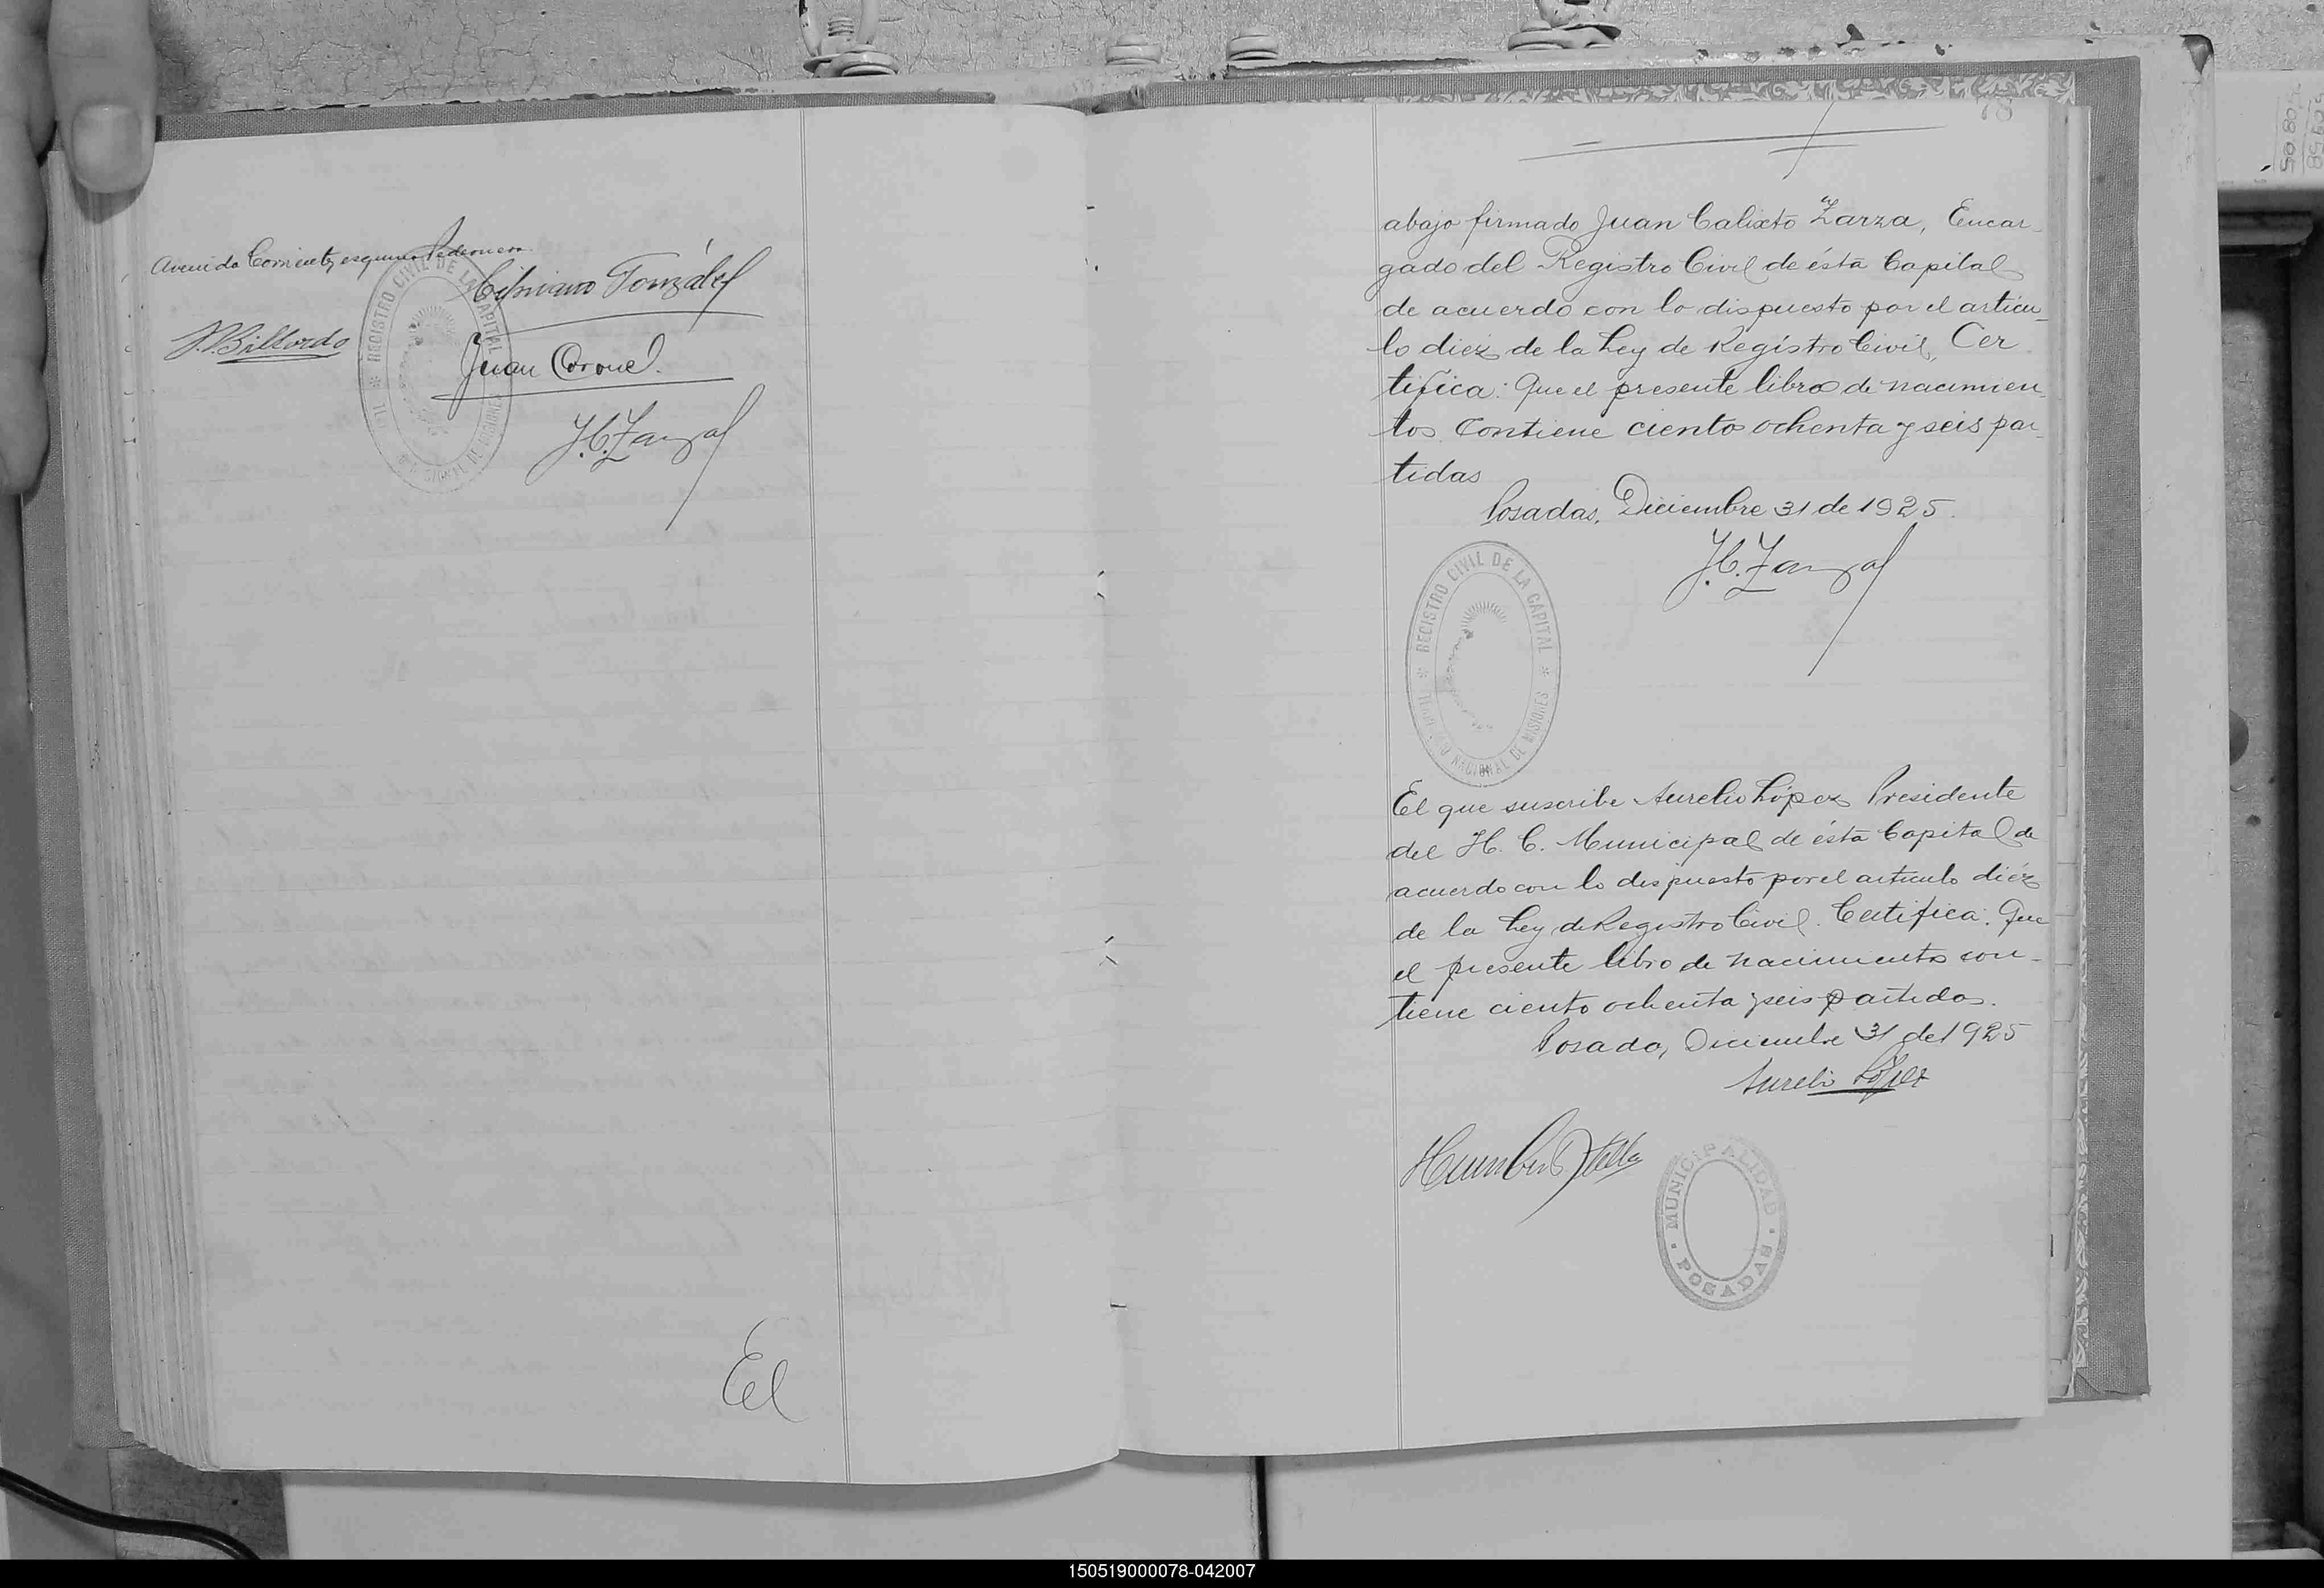 Avenida Corrientes esquina Pedernera
Cipriano González
P. Billordo
Juan Coronel.
J.C. Zarza
REGISTRO CIVIL DE LA CAPITAL
NACIONAL DE MISIONES
El
78
abajo firmado Juan Calixto Zarza, Encar
gado del Registro Civil de ésta Capital
de acuerdo con lo dispuesto por el articu_
lo diez de la Ley de Registro Civil, Cer
tifica: Que el presente libro de nacimien_
tos contiene ciento ochenta y seis par_
tidas
Posadas, Diciembre 31 de 1925.
J.C. Zarza
REGISTRO CIVIL DE LA CAPITAL
NACIONAL DE MISIONES
El que suscribe Aurelio López Presidente
del H. C. Municipal de ésta Capital de
acuerdo con lo dispuesto por el articulo diéz
de la Ley de Registro Civil. Certifica: Que
el presente libro de nacimientos con-
tiene ciento ochenta y seis partidas.
Posadas, Diciembre 31 de 1925
Aurelio López
Humberto
MUNICIPALIDAD
POSADAS
150519000078-042007